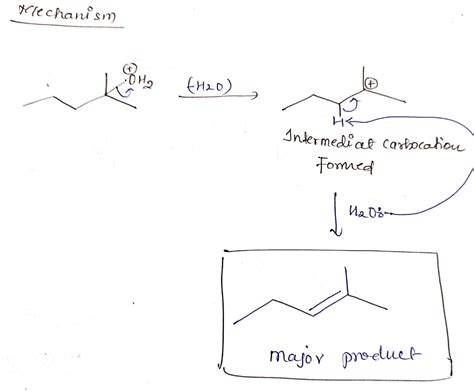 Mechanism
⊕
OH2
(-H2O)
⊕
H
Intermediat carbocation
Formed
H2O:
major product